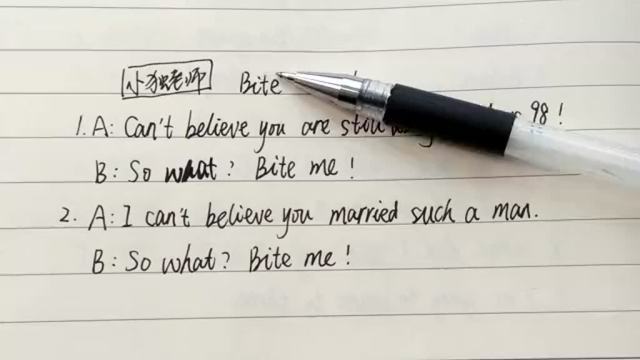 小独老师 Bite
1. A: Can't believe you are 98!
B: So what? Bite me!
2. A: I can't believe you married such a man.
B: So what? Bite me!